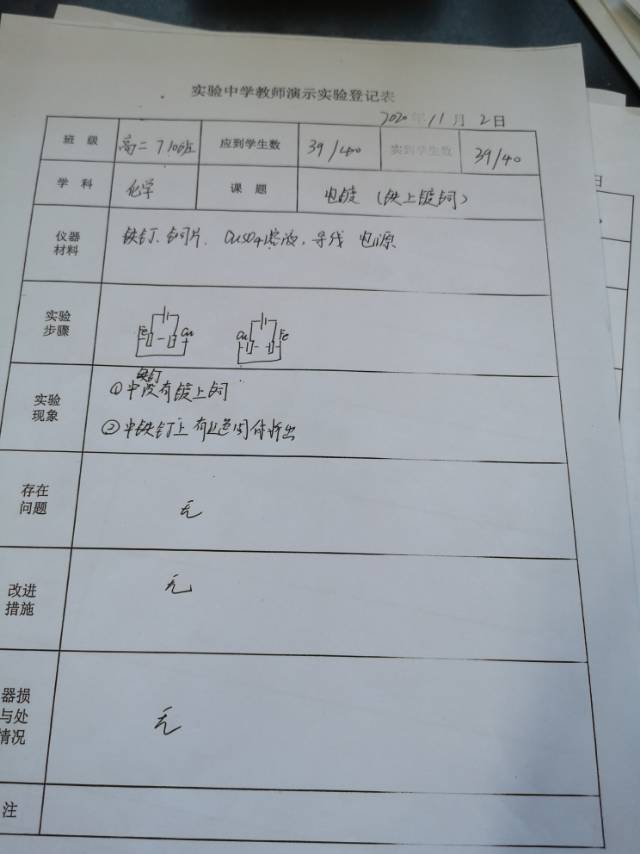 实验中学教师演示实验登记表
2020年11月2日
班级 高二7.10班 应到学生数 39/40 实到学生数 39/40
学科 化学 课题 电镀(铁上镀铜)
仪器材料 铁钉、铜片、CuSO4溶液、导线 电源
实验步骤 Fe Cu Cu Fe
实验现象 ①中铁钉没有镀上铜
②中铁钉上有红色固体析出
存在问题 无
改进措施 无
器损与处情况 无
注
日